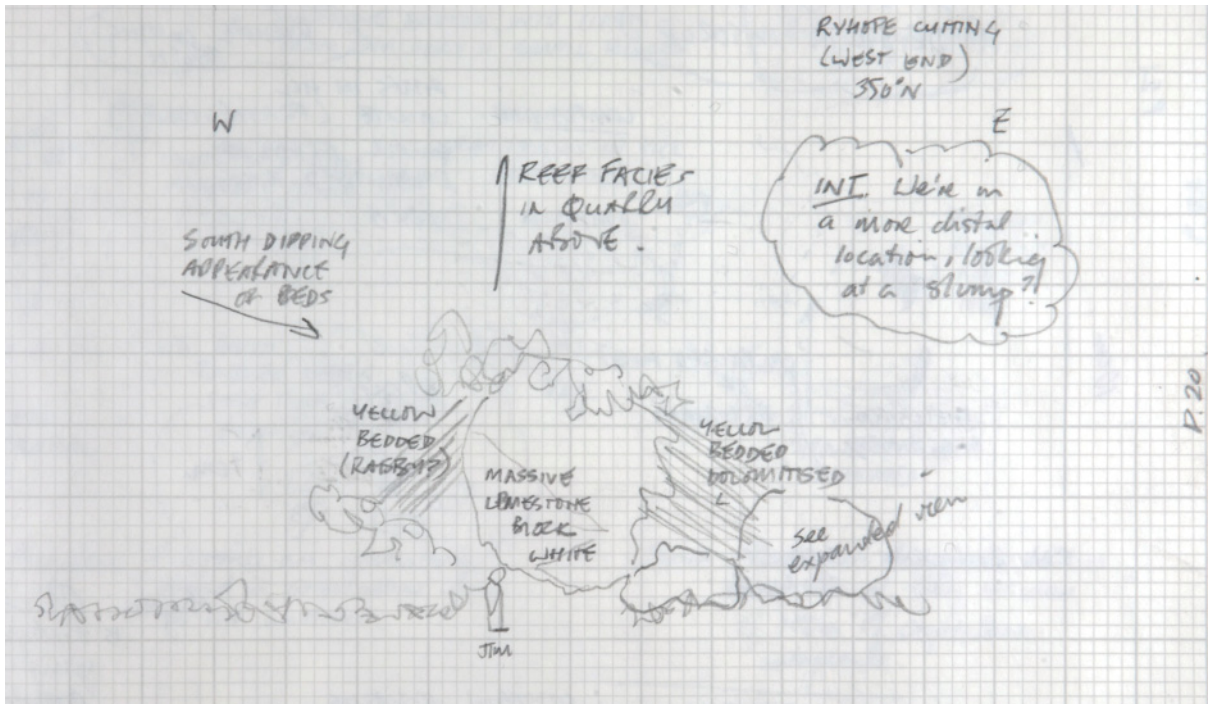 RYHOPE CUTTING
(WEST END)
350°N
W
E
REEF FACIES
IN QUARRY
ABOVE.
INT. We're in
a more distal
location, looking
at a slump?!
SOUTH DIPPING
APPEARANCE
OF BEDS
P. 20
YELLOW
BEDDED
(RAISBY?)
MASSIVE
LIMESTONE
BLOCK
WHITE
YELLOW
BEDDED
DOLOMITISED
L
see
expanded view
JIM